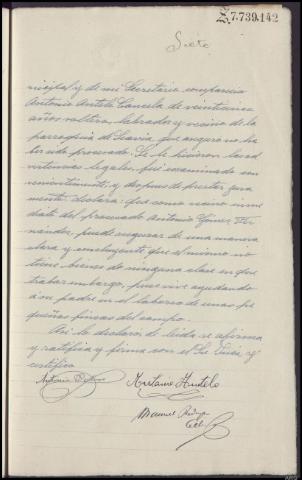 7.739.142
Siete
nicipal y de mi Secretario compareció
Antonio Antelo Cancela de veinticinco
años soltero, labrador y vecino de la
parroquia de que aseguró no ha
ber sido procesado. Se le hicieron las ad
vertencias legales, fué examinado con
venientemente; y despues de prestar jura
mento: declara: que como vecino inme
diato del procesado Antonio Gómez Fer
nández, puede asegurar de una manera
clara y concluyente que el mismo no
tiene bienes de ninguna clase en que
trabar embargo, pues vive ayudando
á su padre en el laboreo de unas pe
queñas fincas del campo.
Así lo declaró: leida se afirma
y ratifica y firma con el Sr Juez, y
certifico
Antonio Antelo
Manuel